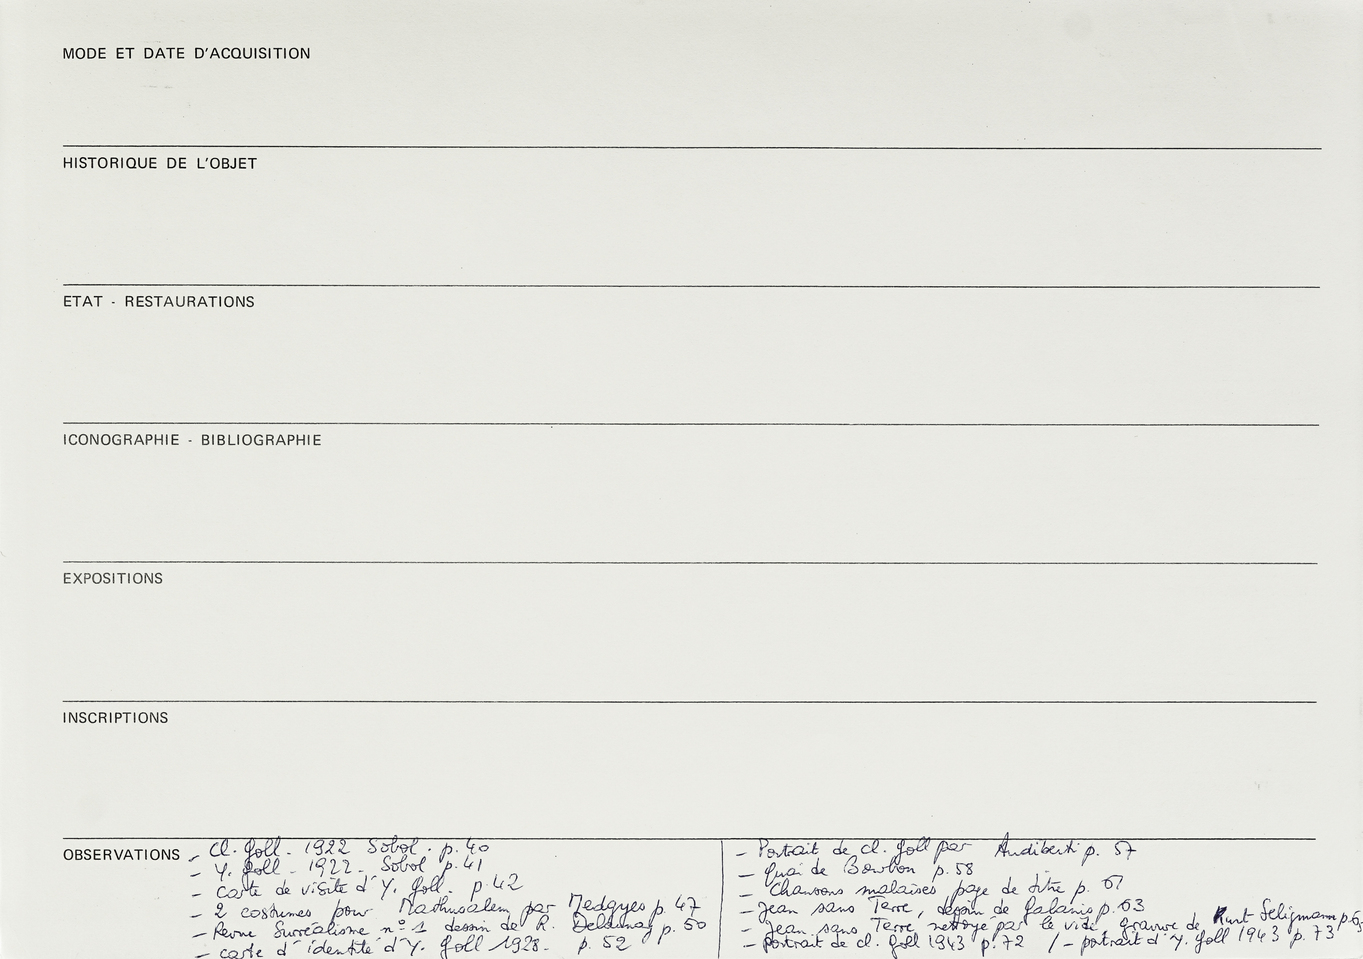 MODE ET DATE D'ACQUISITION
HISTORIQUE DE L'OBJET
ETAT - RESTAURATIONS
ICONOGRAPHIE - BIBLIOGRAPHIE
EXPOSITIONS
INSCRIPTIONS
OBSERVATIONS
- Cl. Goll - 1922 Sobol . p. 40
- Y. Goll - 1922 - Sobol p. 41
- carte de visite d'Y. Goll. p. 42
- 2 costumes pour Mathusalem par Medgyes p. 47
- Revue Surréalisme n° 1 dessin de R. Delaunay p. 50
- carte d'identité d'Y. Goll 1928 - p. 52
- Portrait de Cl. Goll par Audiberti p. 57
- Quai de Bourbon p. 58
- Chansons malaises page de titre p. 61
- Jean sans Terre, dessin de Galanis p. 63
- Jean sans Terre nettoyé par le vide, gravure de Kurt Seligmann
- portrait de cl. Goll 1943 p. 72 / - portrait d'Y. Goll 1943 p. 73